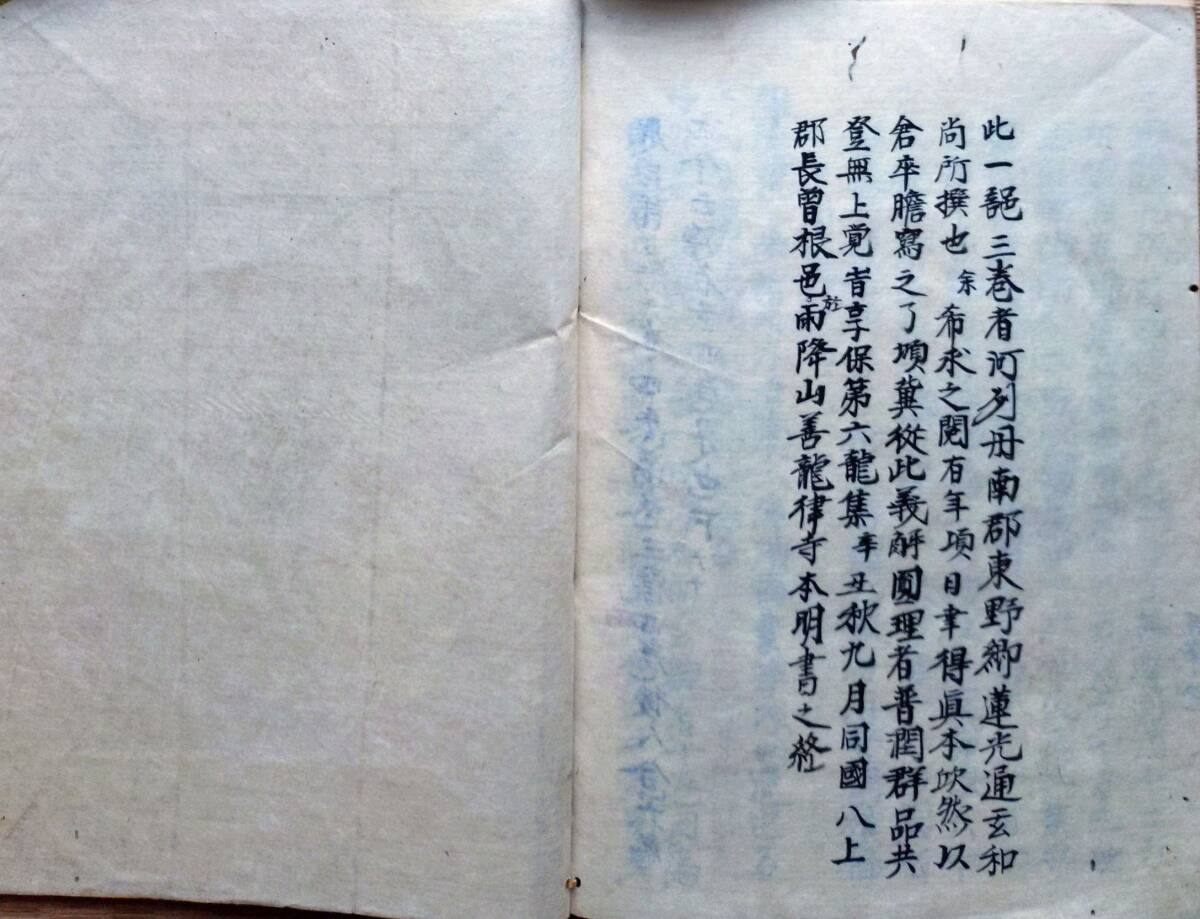 此一部三巻者河列丹南郡東野郷蓮光通玄和
尚所撰也余希求之閱有年項日幸得眞本欣然以
倉卒膽寫之了項冀從此義解圓理者普潤群品共
登無上覚者享保第六龍集辛丑秋九月同國八上
郡長曽根邑於雨降山善龍律寺本明書之